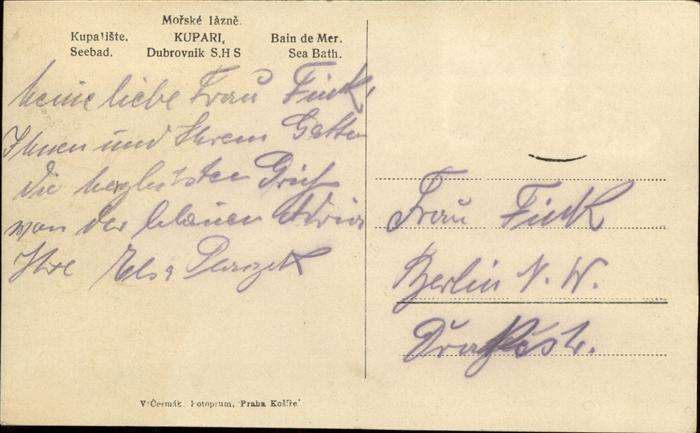 Mořské lázně.
Kupalište. KUPARI, Bain de Mer.
Seebad. Dubrovnik S.H S Sea Bath.
meine liebe Frau Fink,
Ihnen und Ihrem Gatten
die herzlichsten Grüße
von der blauen Adria
Ihre Elsa
Frau Fink
Berlin N. W.
V. Čermák, Fotoprum, Praha Košíře